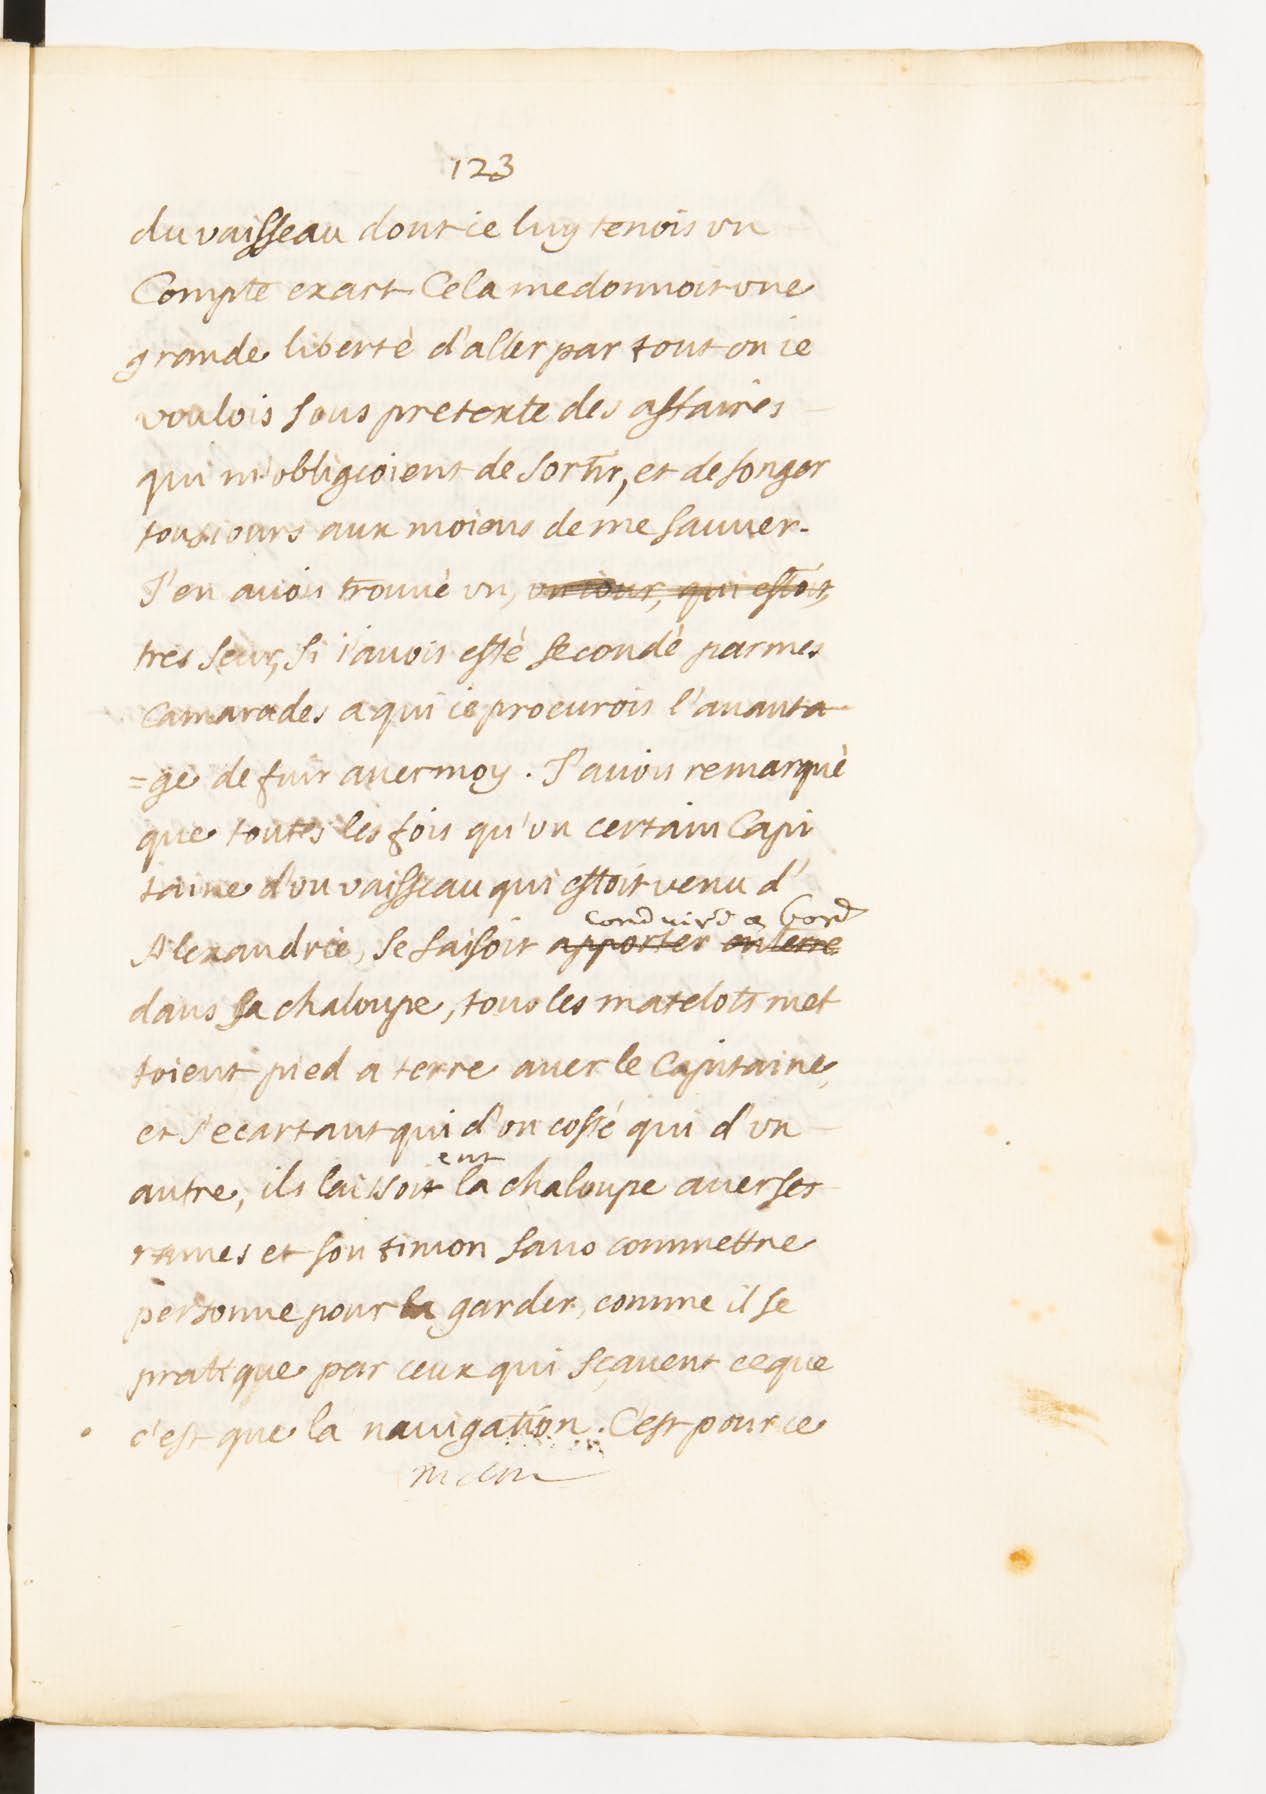 123
du vaisseau dont ie luy tenois vn
Compte exact Cela me donnoit vne
grande libertè d'aller par tout ou ie
voulois sous pretexte des affaires
qui m'obligeoient de sortir, et de songer
tousiours aux moiens de me sauuer.
J'en auois trouuè vn, vn iour, qui estoit,
tres seur, si i'auois estè secondè par mes
Camarades a qui ie procurois l'auanta
=ge de fuir auec moy. J'auois remarquè
que toutes les fois qu'vn certain Capi
taine d'vn vaisseau qui estoit venu d'
conduire a bord
Alexandrie, se faisoit apporter en terre
dans sa chaloupe, tous les matelots met
toient pied a terre auec le Capitaine,
et s'ecartant qui d'vn costé qui d'vn
ent
autre, ils laissoit la chaloupe auec ses
rames et son timon sans commettre
personne pour la garder, comme il se
prattque par ceux qui sçauent ce que
c'est que la nauigation. C'est pour ce